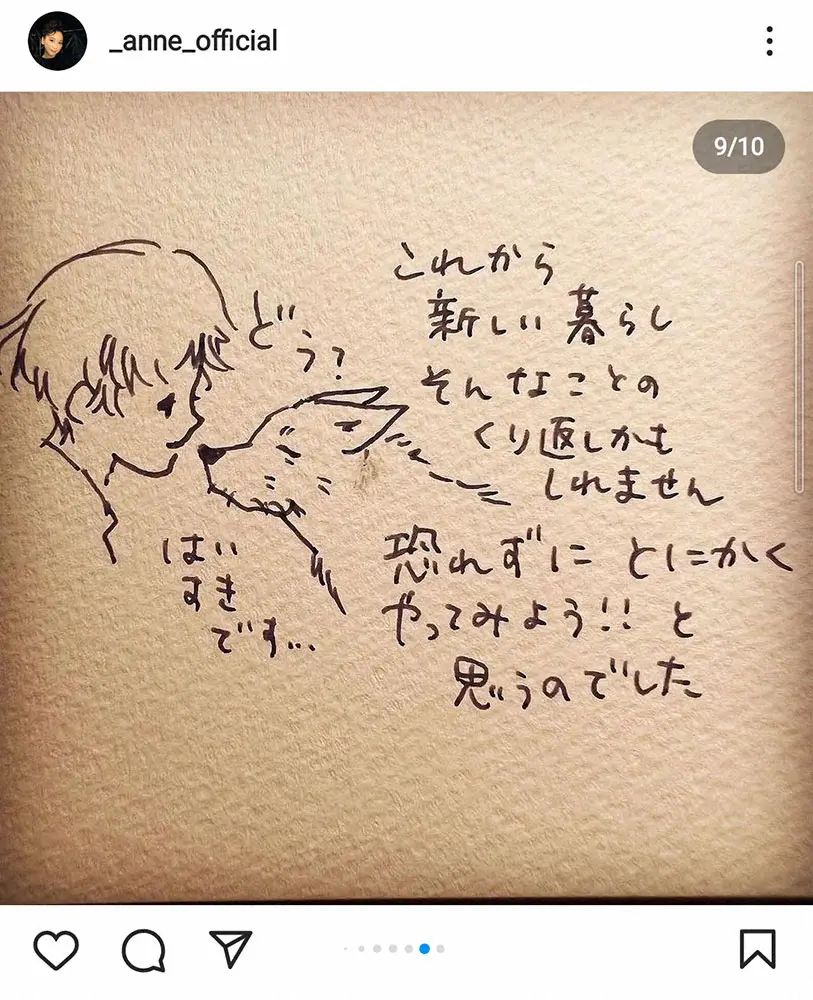 _anne_official
9/10
どう?
これから
新しい暮らし
そんなことの
くり返しかも
しれません
はい
すき
です…
恐れずに とにかく
やってみよう!! と
思うのでした